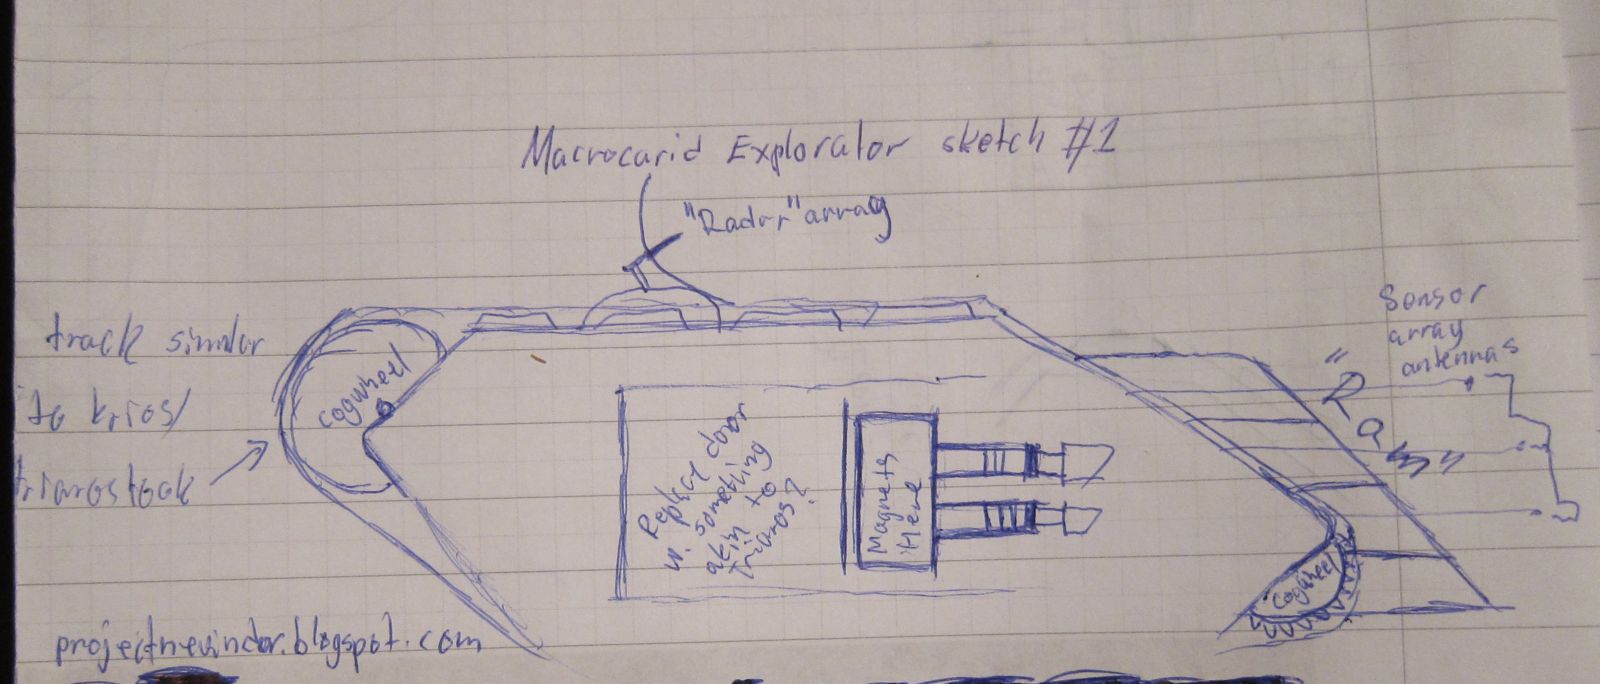 Macrocarid Explorator sketch #1
"Radar" array
Sensor
array
antennas
track similar
to krios/
triaros took
cogwheel
"Ram"
Replace door
w. something
akin to
triaros?
Magnets
Here
cogwheel
projectnevindor.blogspot.com